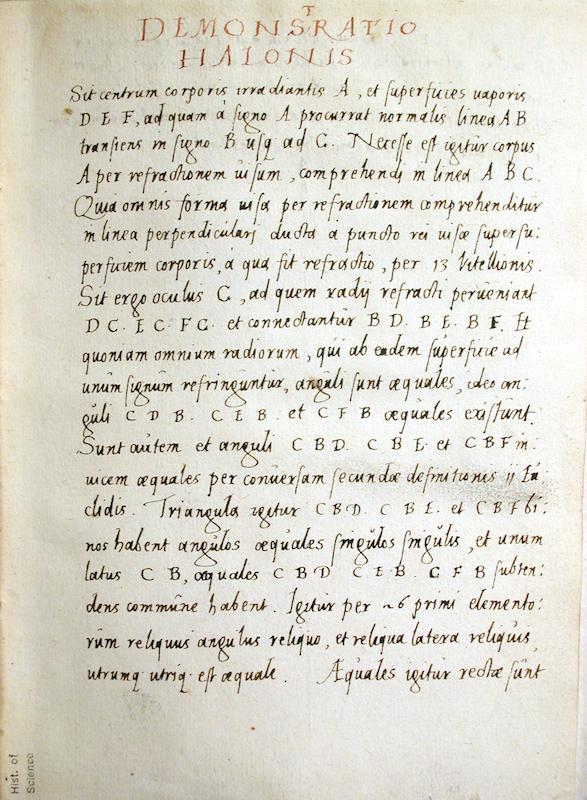 DEMONSTRATIO
HALONIS
Sit centrum corporis irradiantis A, et superficies vaporis
D E F, ad quam à signo A procurrat normalis linea A B
transiens in signo B usq ad C. Necesse est igitur corpus
A per refractionem uisum, comprehendi in linea A B C.
Quia omnis forma uisa per refractionem comprehenditur
in linea perpendiculari ducta a puncto rei uisæ super su:
perficiem corporis, a qua fit refractio, per 13 Vitellionis.
Sit ergo oculus C, ad quem radij refracti perueniant
D C. E C. F C. et connectantur B D. B E. B F. Et
quoniam omnium radiorum, qui ab eadem superficie ad
unum signum refringuntur, anguli sunt æquales, ideo an:
guli C D B. C E B. et C F B æquales existunt.
Sunt autem et anguli C B D. C B E. et C B F in:
uicem æquales per conuersam secundæ definitionis 11 Eu
clidis. Triangula igitur C B D. C B E. et C B F bi:
nos habent angulos æquales singulos singulis, et unum
latus C B, æquales C B D C E B. C F B subten:
dens commune habent. Igitur per 26 primi elemento:
rum reliquus angulus reliquo, et reliqua latera reliquis,
utrumq utriq est æquale. Æquales igitur rectæ sunt
Hist. of
Science